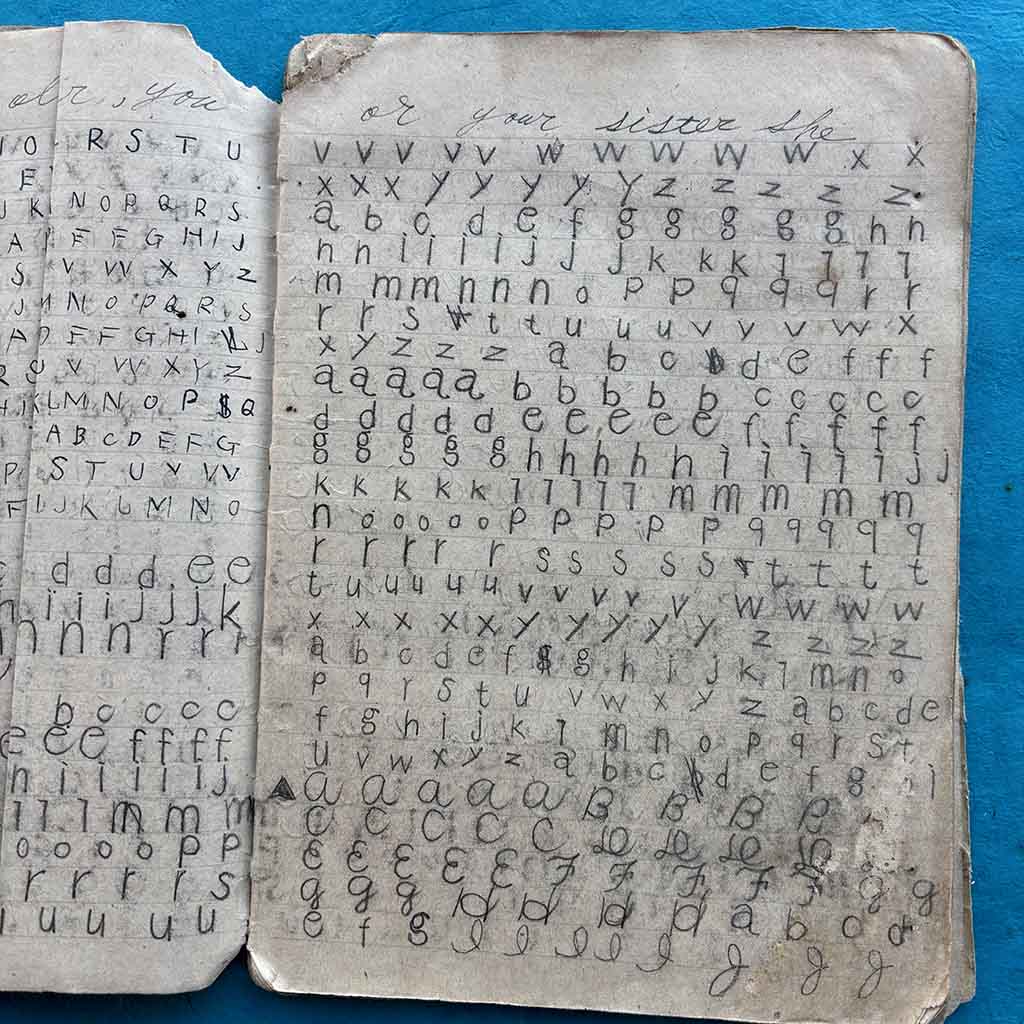 you
I O R S T U
E
J K N O P Q R S
A F F G H I J
S V W X Y Z
J N O P Q R S
A D F F G H I J
V W X Y Z
L M N O P Q
A B C D E F G
P S T U V W
F I J K L M N O
d d d e e
n i i i j j j k
n n n n r r r
b c c c c
e e e f f f f
n i i i i i j
l l l m m m m
o o o o p p
r r r r r s
u u u u u
or your sister she
v v v v v w w w w w x x
x x x y y y y y z z z z z
a b c d e f g g g g g h h
h n i i i i j j j k k k l l l l
m m m n n n o p p q q q r r
r r s t t u u u v y v w x
x y z z z a b c d e f f f
a a a a a b b b b b c c c c c
d d d d d e e e e e f f f f f
g g g g g h h h h h i i i i i j j
k k k k k l l l l l m m m m m
n o o o o o p p p p p q q q q q
r r r r r s s s s s t t t t
t u u u u u v v v v v w w w w
x x x x x y y y y y z z z z
a b c d e f g h i j k l m n o
p q r s t u v w x y z a b c d e
f g h i j k l m n o p q r s t
u v w x y z a b c d e f g i
a a a a a B B B B
C C C C C D D D D
E E E E E F F F F F g g
g g g H H H H a b c d
e f g I I I I I J J J